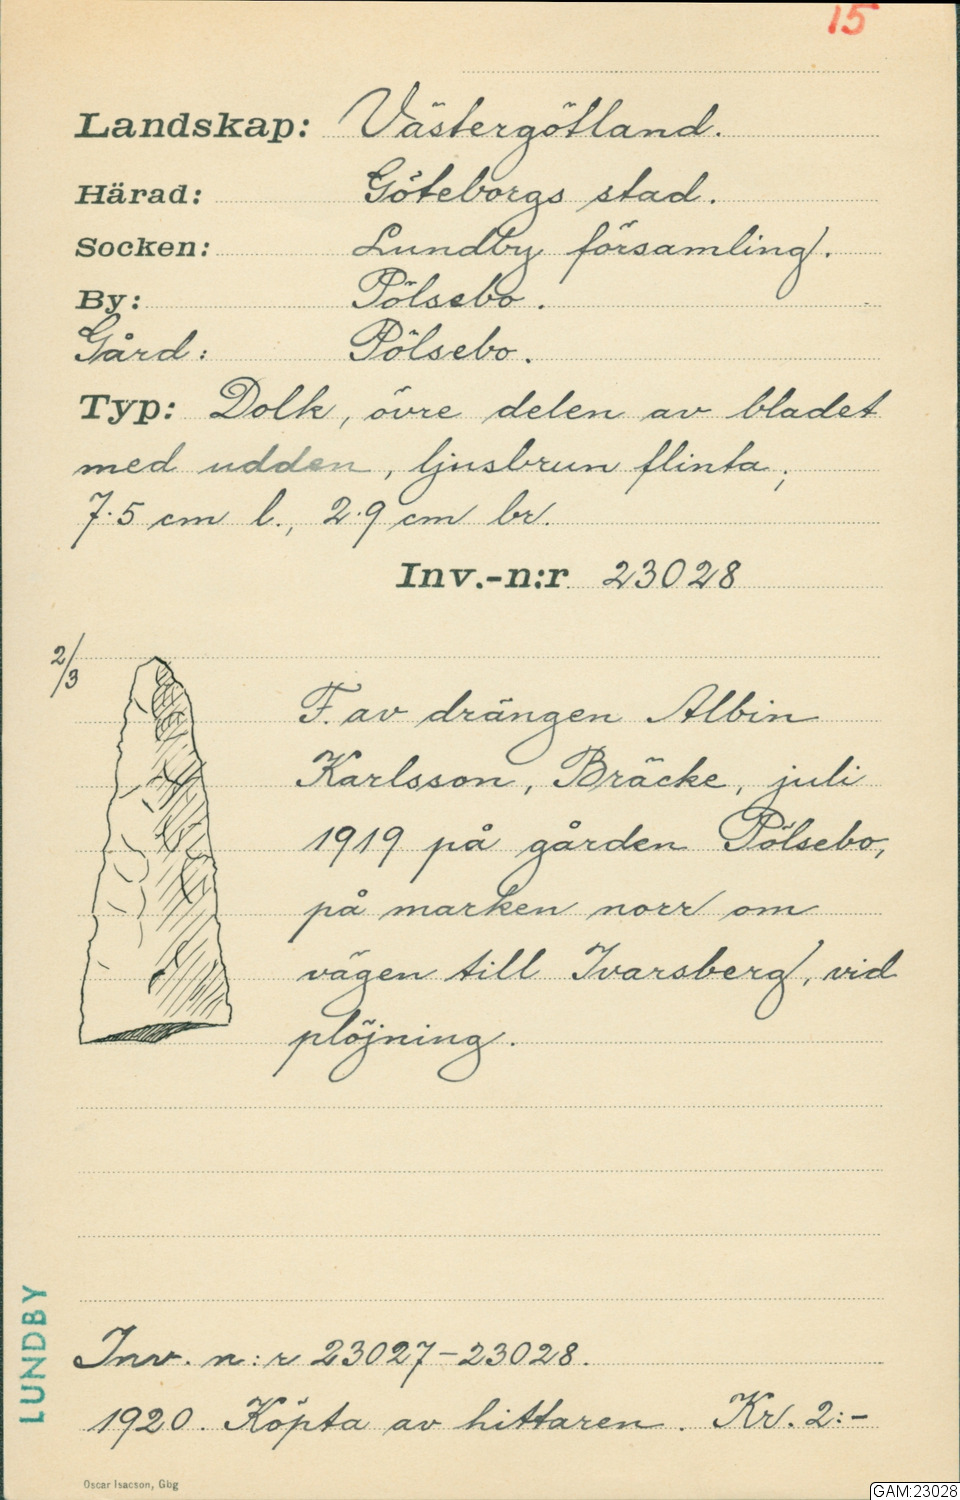 15
Landskap: Västergötland.
Härad: Göteborgs stad.
Socken: Lundby församling.
By: Pölsebo.
Gård: Pölsebo.
Typ: Dolk, övre delen av bladet
med udden, ljusbrun flinta;
7.5 cm l., 2.9 cm br.
Inv.-n:r 23028
2/3
F. av drängen Albin
Karlsson, Bräcke, juli
1919 på gården Pölsebo,
på marken norr om
vägen till Ivarsberg, vid
plöjning.
LUNDBY
Inv. n:r 23027-23028.
1920. Köpta av hittaren. Kr. 2:-
Oscar Isacson, Gbg
GAM:23028